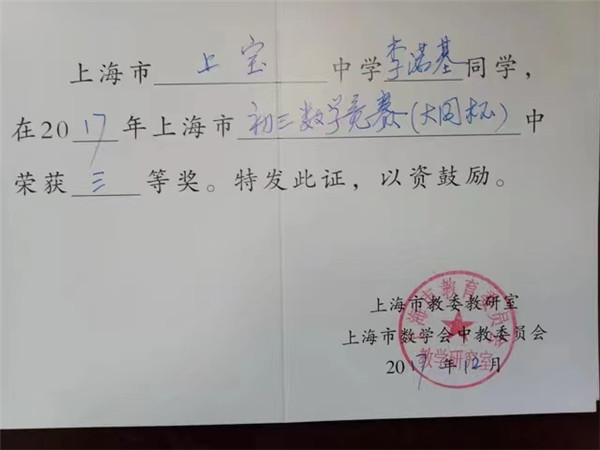 上海市上宝中学李諾基同学，
在2017年上海市初三数学竞赛(大同杯)中
荣获三等奖。特发此证，以资鼓励。
上海市教委教研室
上海市数学会中教委员会
2017年12月
上海市教育委员会
教学研究室